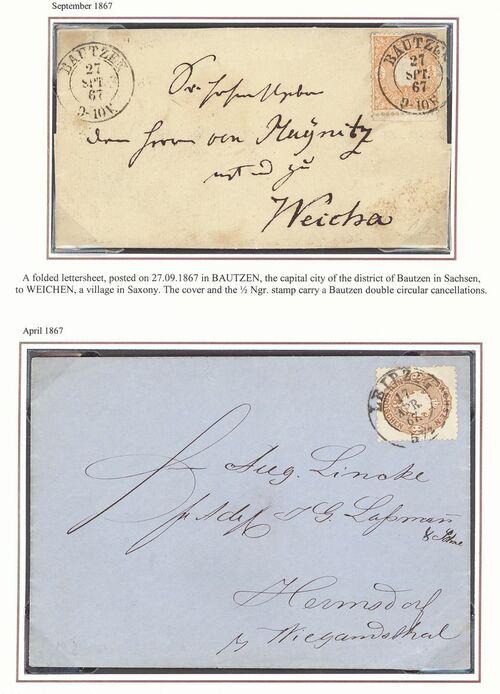 September 1867
BAUTZEN
27
SPT.
67
9-10V.
BAUTZEN
27
SPT.
67
9-10V.
dem Herrn von
und zu
Weicha
A folded lettersheet, posted on 27.09.1867 in BAUTZEN, the capital city of the district of Bautzen in Sachsen,
to WEICHEN, a village in Saxony. The cover and the ½ Ngr. stamp carry a Bautzen double circular cancellations.
April 1867
LEIPZIG
17
APR.
67
Aug. Lincke
J G. Laßmann
& Söhne
Hermsdorf
Wiegandsthal